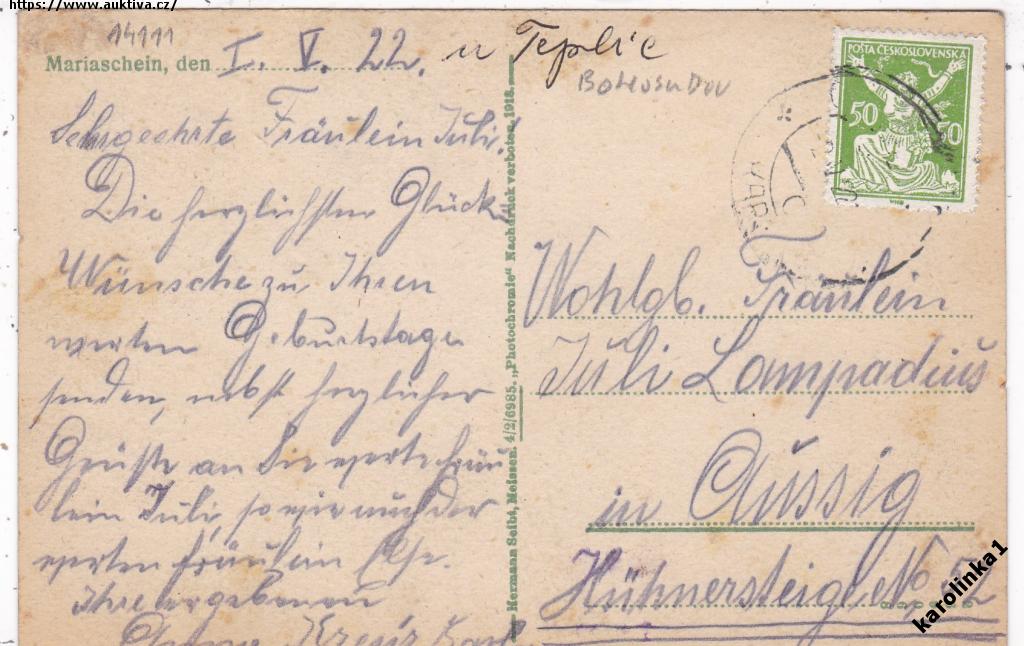 https://www.auktiva.cz/
14111
Mariaschein, den I. V. 22. u Teplic
Bohosudov
Sehrgeehrte Fräulein Juli!
Die herzlichsten Glück
Wünsche zu Ihren
werten Geburtstage
senden, nebst herzlicher
Grüße an Sie werte Fräu
lein Juli, sowie auch der
werten Fräulein
Ihre ergebenen
Hermann Seibt, Meissen. 4/2/6985. „Photochromie" Nachdruck verboten, 1918.
POŠTA ČESKOSLOVENSKÁ
50 50
Wohlgb. Fräulein
Juli Lampadius
in Aussig
Hühnersteige No 52
karolinka1